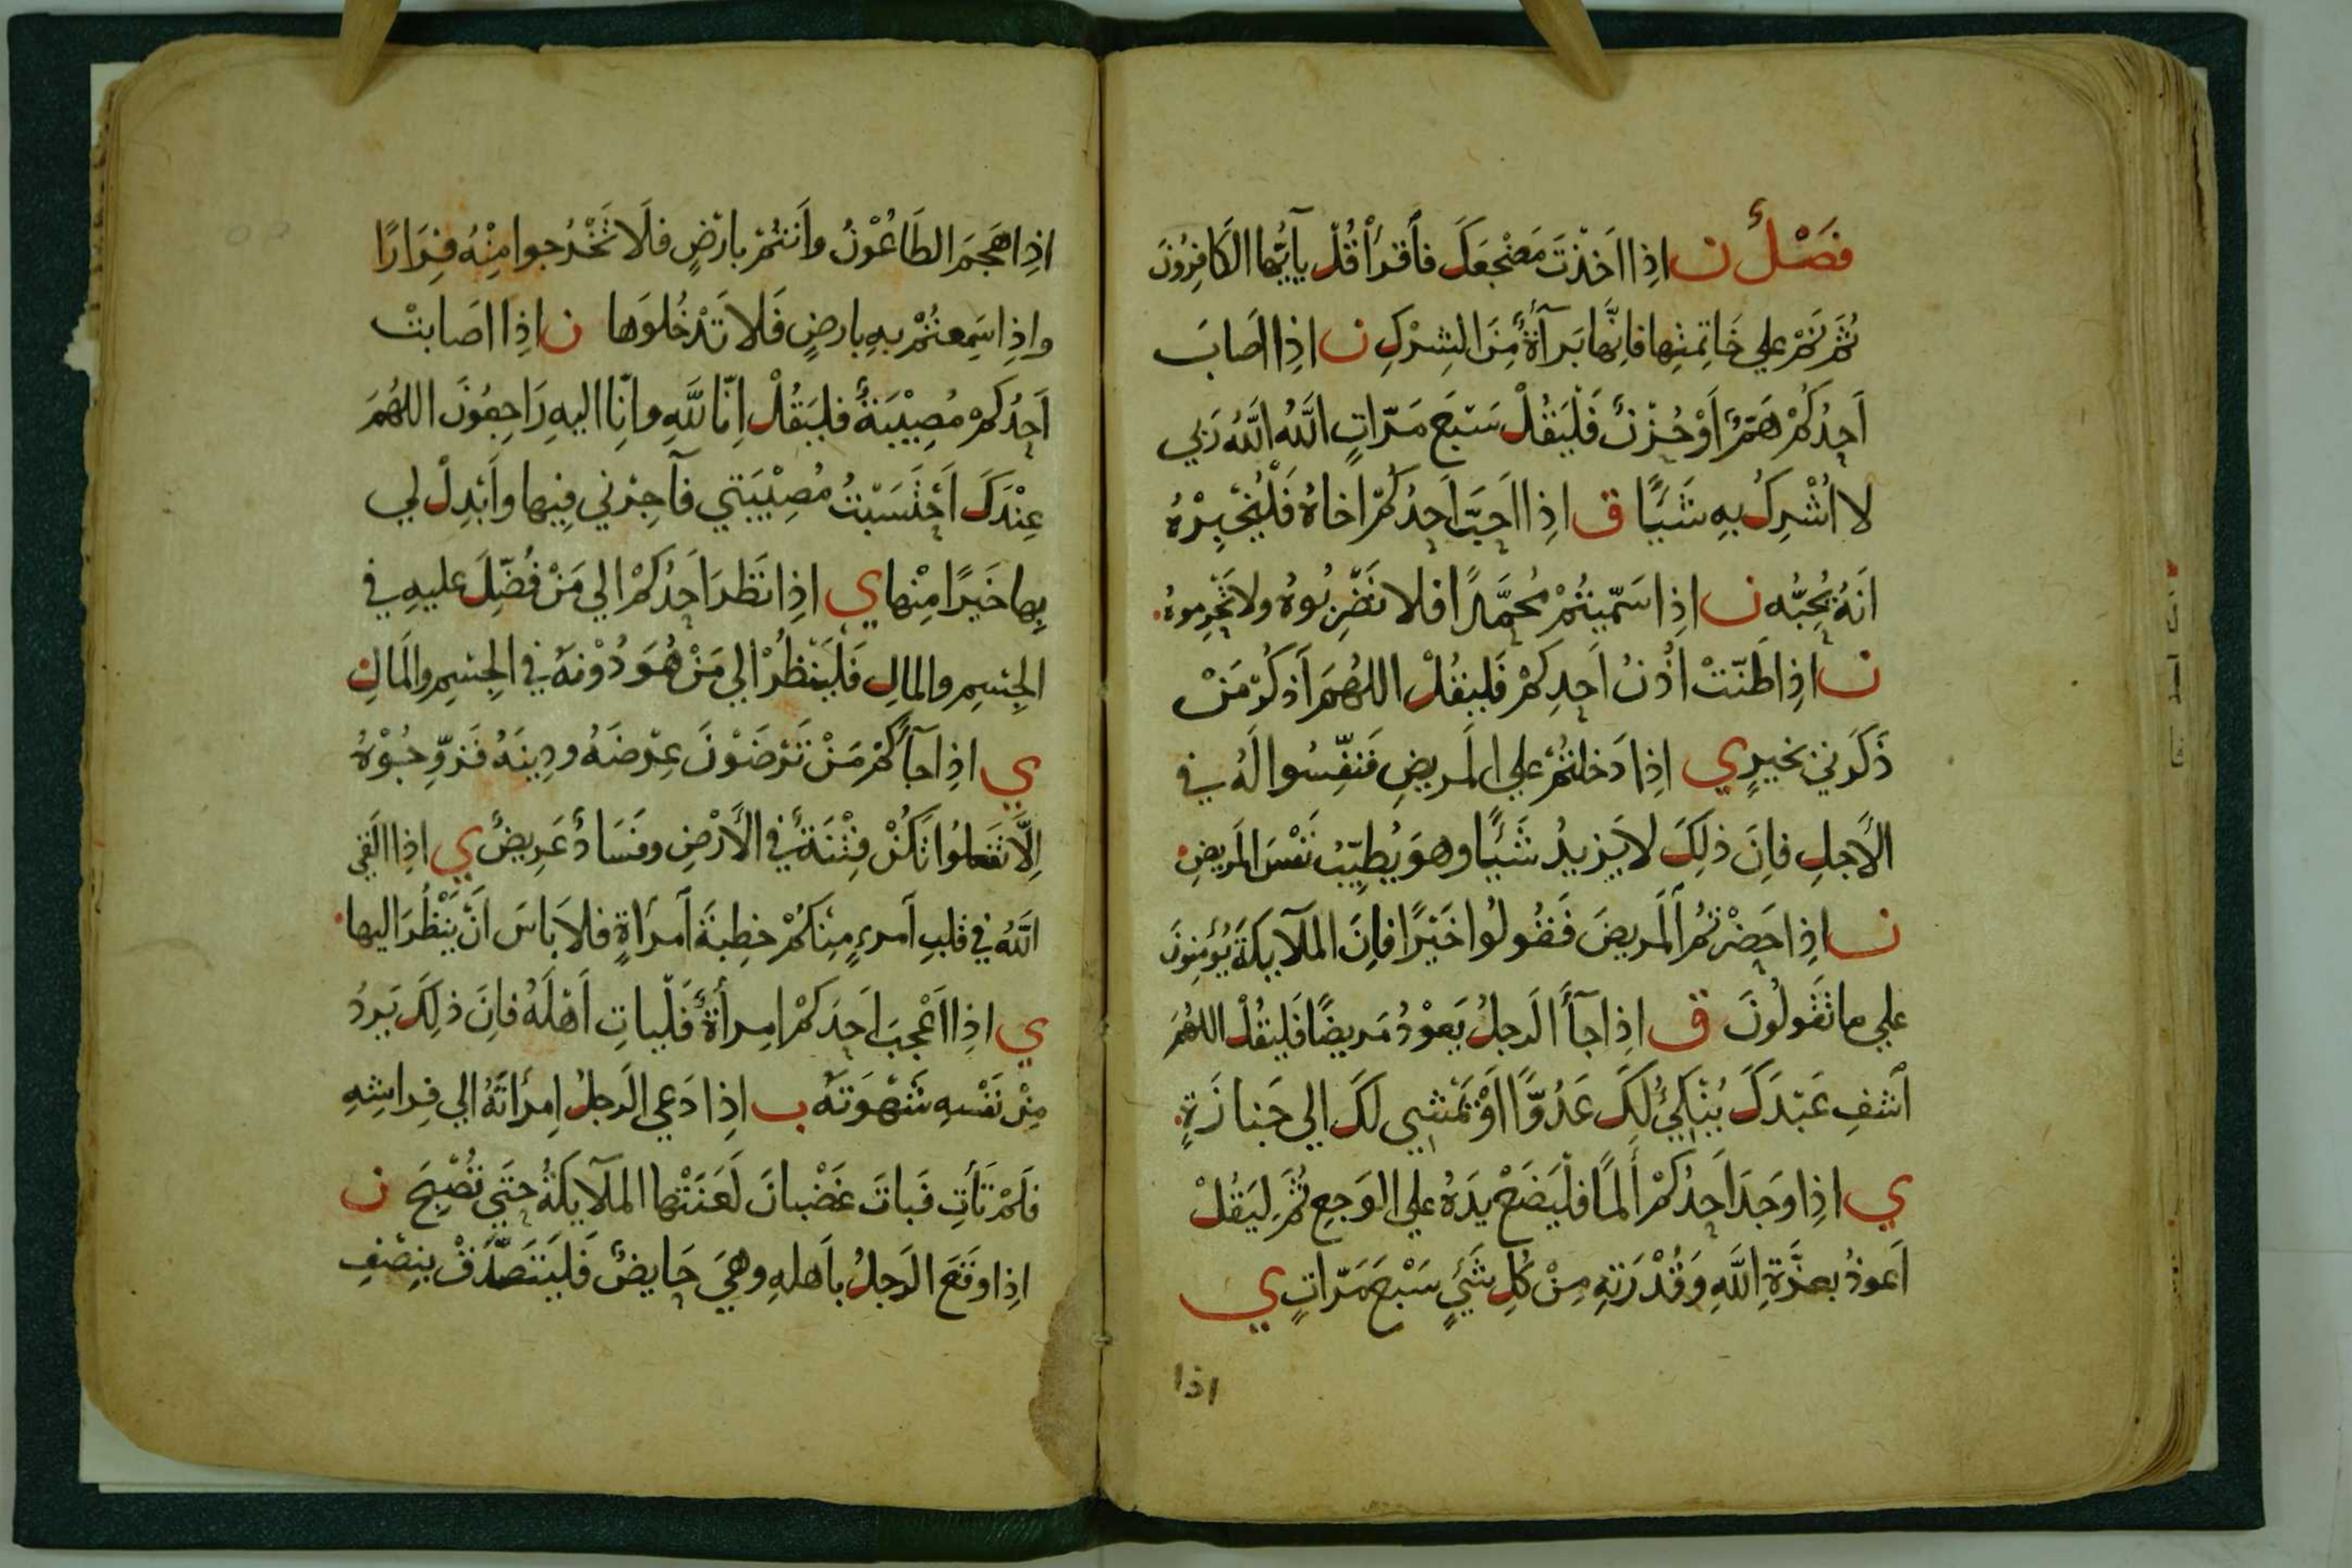 فَصْلٌ ن اذِا اَخَذْتَ مَضْجَعَكَ فأقرَأ قُلْ يآيُّها الكَافِرُونَ
ثُمَّ نَمْ علي خَاتِمتِها فاِنَّها بَرآةٌ مِنَ الشِرْكِ ن اذِا اَصَابَ
اَحدُكُمْ هَمٌّ اَوْ حُزْنٌ فَلْيَقُلْ سَبْعَ مَرّاتٍ اللَّهُ اللَّهُ رَبي
لا اُشْرِكُ بهِ شَيًْا ق اذِا اَحبَّ اَحدُكُمْ اخاهُ فَلْيُخْبِرْهُ
اَنَهُ يُحِبُّه ن اذِا سَمّيتُمْ مُحمَّدًا فلا تَضْرِبُوهُ ولا تَحْرِموهُ
ن اذِا طَنّتْ اُذُنُ اَحدِكُمْ فَليقُلْ اللهُمَ اَذكُرْ مَنْ
ذَكَرَني بخيرٍ ي اذِا دَخلتُمْ علي المَريضِ فَنَفِّسُوا لَهُ في
الاَجلِ فاِنَ ذلِكَ لا يَزيدُ شَيًْا وهوَ يُطيّبُ نَفْسَ المَريضِ
ن اذِا حَضرْتُمُ المَريضَ فَقُولُوا خَيْرًا فاِنَ الملآيكَةَ يُؤمِنونَ
علي ما تَقُولُونَ ق اذِا جآأَ الرَجلُ يَعوْدُ مَريضًا فَليقُلْ اللهُمَ
اَشفِ عَبْدَكَ يُنْكِيُ لَكَ عَدُوًّا اَوْ يَمْشِي لَكَ الي جَنازَةٍ
ي اذِا وَجَدَ اَحدُكُمْ اَلمًا فلْيَضَعْ يدَهُ علي الوَجعِ ثُمَ ليَقُلْ
اَعوذُ بعزَّةِ اللَّهِ وَقُدْرَتهِ مِنْ كُلِ شَيٍْ سَبْعَ مَرّاتٍ ي
اذا
اذِا هَجمَ الطَاعُوْنُ واَنتُمْ بارْضٍ فلَا تَخْرُجوا مِنْهُ فِرَارًا
واذِا سَمِعتُمْ بهِ بارضٍ فَلا تَدْخُلوَها ن اذِا اصَابتْ
اَحدُكمْ مُصِيْبَةٌ فليَقُلْ اِنّا للَّهِ وانِّا اليهِ رَاجِعُونَ اللهُمَ
عِنْدَكَ اَحْتَسَبْتُ مُصِيْبَتي فآجِرْني فِيها واَبْدِلْ لي
بِها خَيَرًا مِنْها ي اذِا نَظرَ اَحدُكمْ الي مَنْ فُضّلَ عليهِ في
الجِسِمِ والمالِ فَلْيَنْظُرْ الي مَنْ هُوَ دُوْنهَ في الجِسِمِ والمَالِ
ي اذِا جآَكُمْ مَنْ تَرْضَوْنَ عِرْضَهُ ودِينَهُ فَزوّجُوْهُ
اِلّا تَفعلوُا تَكُنْ فِتْنَةٌ في الاَرْضِ وفَسَادٌ عَرِيضٌ ي اذِا القَي
اللَّهُ في قلبِ اَمرءٍ مِنكُمْ خِطبةَ اَمرَاةٍ فلا بَاسَ اَنْ يَنْظُرَ اليها
ي اذِا اَعْجبَ اَحدَكمْ امِراَةٌ فَلْياتِ اَهْلَهُ فاِنَ ذلِكَ يَردُ
مِنْ نَفْسهِ شَهْوَتَهُ ب اذِا دَعي الرَجلُ اِمرَاتَهُ الي فِراشِهِ
فلَمْ تَأتِ فَباتَ غَضْبانَ لَعنَتْها الملآيكَةُ حتَي تُصْبِحَ ن
اذِا وقَعَ الرَجلُ باَهلهِ وهيَ حَايضٌ فَليَتَصَدَّقْ بنِصْفِ